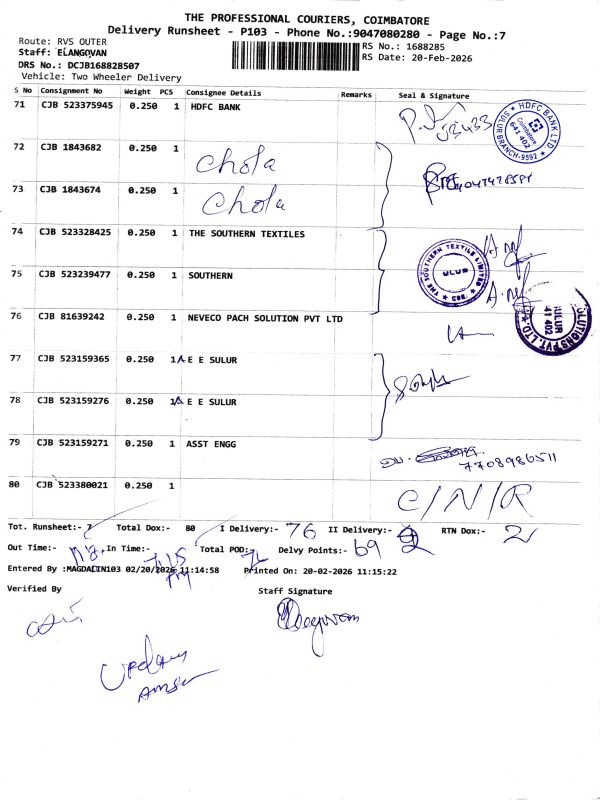 THE PROFESSIONAL COURIERS, COIMBATORE
Delivery Runsheet - P103 - Phone No.:9047080280 - Page No.:7
Route: RVS OUTER
RS No.: 1688285
Staff: ELANGOVAN
RS Date: 20-Feb-2026
DRS No.: DCJB168828507
Vehicle: Two Wheeler Delivery
S No Consignment No Weight PCS Consignee Details Remarks Seal & Signature
71 CJB 523375945 0.250 1 HDFC BANK
HDFC BANK LTD
Coimbatore
641 402
SULUR BRANCH-9592
72 CJB 1843682 0.250 1 Chola
73 CJB 1843674 0.250 1 Chola
74 CJB 523328425 0.250 1 THE SOUTHERN TEXTILES
THE SOUTHERN TEXTILE LIMITED
SULUR
CBE.
75 CJB 523239477 0.250 1 SOUTHERN
76 CJB 81639242 0.250 1 NEVECO PACH SOLUTION PVT LTD
SULUR
41 402
OLUTIONS PVT. LTD.
77 CJB 523159365 0.250 1 A E E SULUR
78 CJB 523159276 0.250 1 A E E SULUR
79 CJB 523159271 0.250 1 ASST ENGG
7708986511
80 CJB 523380021 0.250 1 C/N/R
Tot. Runsheet:- 7 Total Dox:- 80 I Delivery:- 76 II Delivery:- 2 RTN Dox:- 2
Out Time:- In Time:- 7.15 PM Total POD:- 72 Delvy Points:- 69
Entered By :MAGDALIN103 02/20/2026 11:14:58 Printed On: 20-02-2026 11:15:22
Verified By Staff Signature
Elangovan